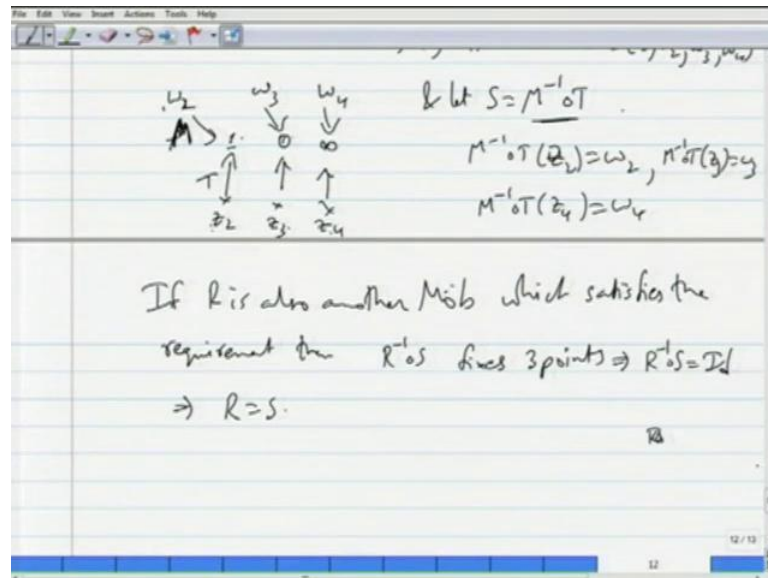 File Edit View Insert Actions Tools Help
ω₂ ω₃ ω₄ & let S = M⁻¹∘T
M 1 0 ∞
T M⁻¹∘T(z₂)=ω₂, M⁻¹∘T(z₃)=ω₃
z₂ z₃ z₄ M⁻¹∘T(z₄)=ω₄
If R is also another Möb which satisfies the
requirement then R⁻¹∘S fixes 3 points ⇒ R⁻¹∘S = Id
⇒ R = S.
12 / 13
12